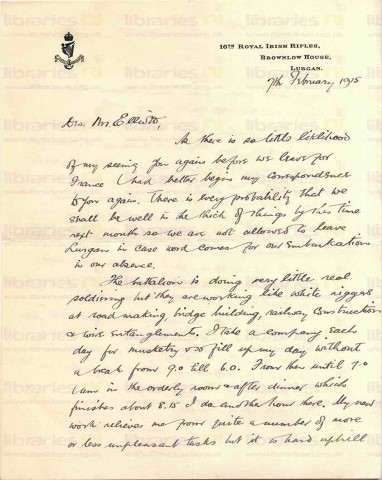 16TH ROYAL IRISH RIFLES,
BROWNLOW HOUSE,
LURGAN.
7th February 1915
Dear Mr Elliott,
As there is so little liklihood
of my seeing you again before we leave for
France I had better begin my correspondence
to you again. There is every probability that we
shall be well in the thick of things by this time
next month so we are not allowed to leave
Lurgan in case word comes for our embarkation
in our absence.
The battalion is doing very little real
soldiering but they are working like white niggers
at road making, bridge building, railway construction
& wire entanglements. I take a company each
day for musketry & so fill up my day without
a break from 9.0 till 6.0. From then until 7.0
I am in the orderly room & after dinner which
finishes about 8.15 I do another hour here. My new
work relieves me from quite a number of more
or less unpleasant tasks but it is hard uphill